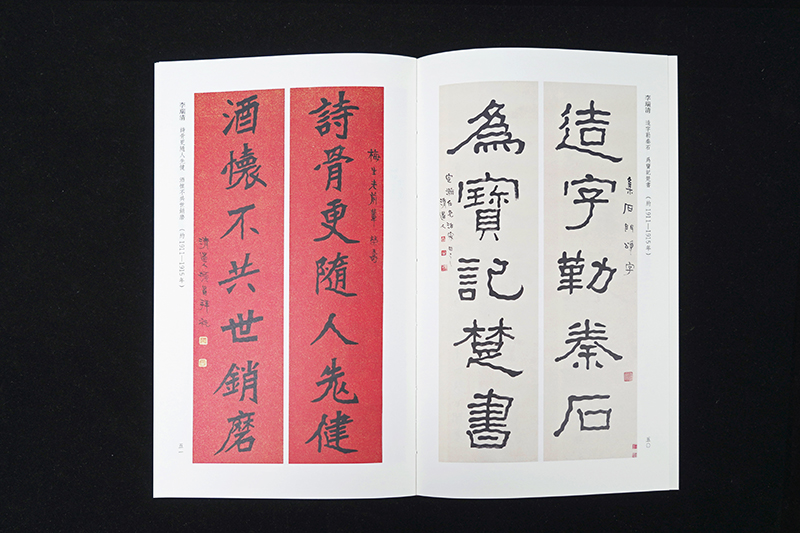 李瑞清 造字勤秦石 為寶記楚書 (約1911—1915年)
集石門頌字
造字勤秦石
為寶記楚書
五〇
詩骨更隨人老健
酒懷不共世銷磨
李瑞清 詩骨更隨人老健 酒懷不共世銷磨 (約1911—1915年)
五一